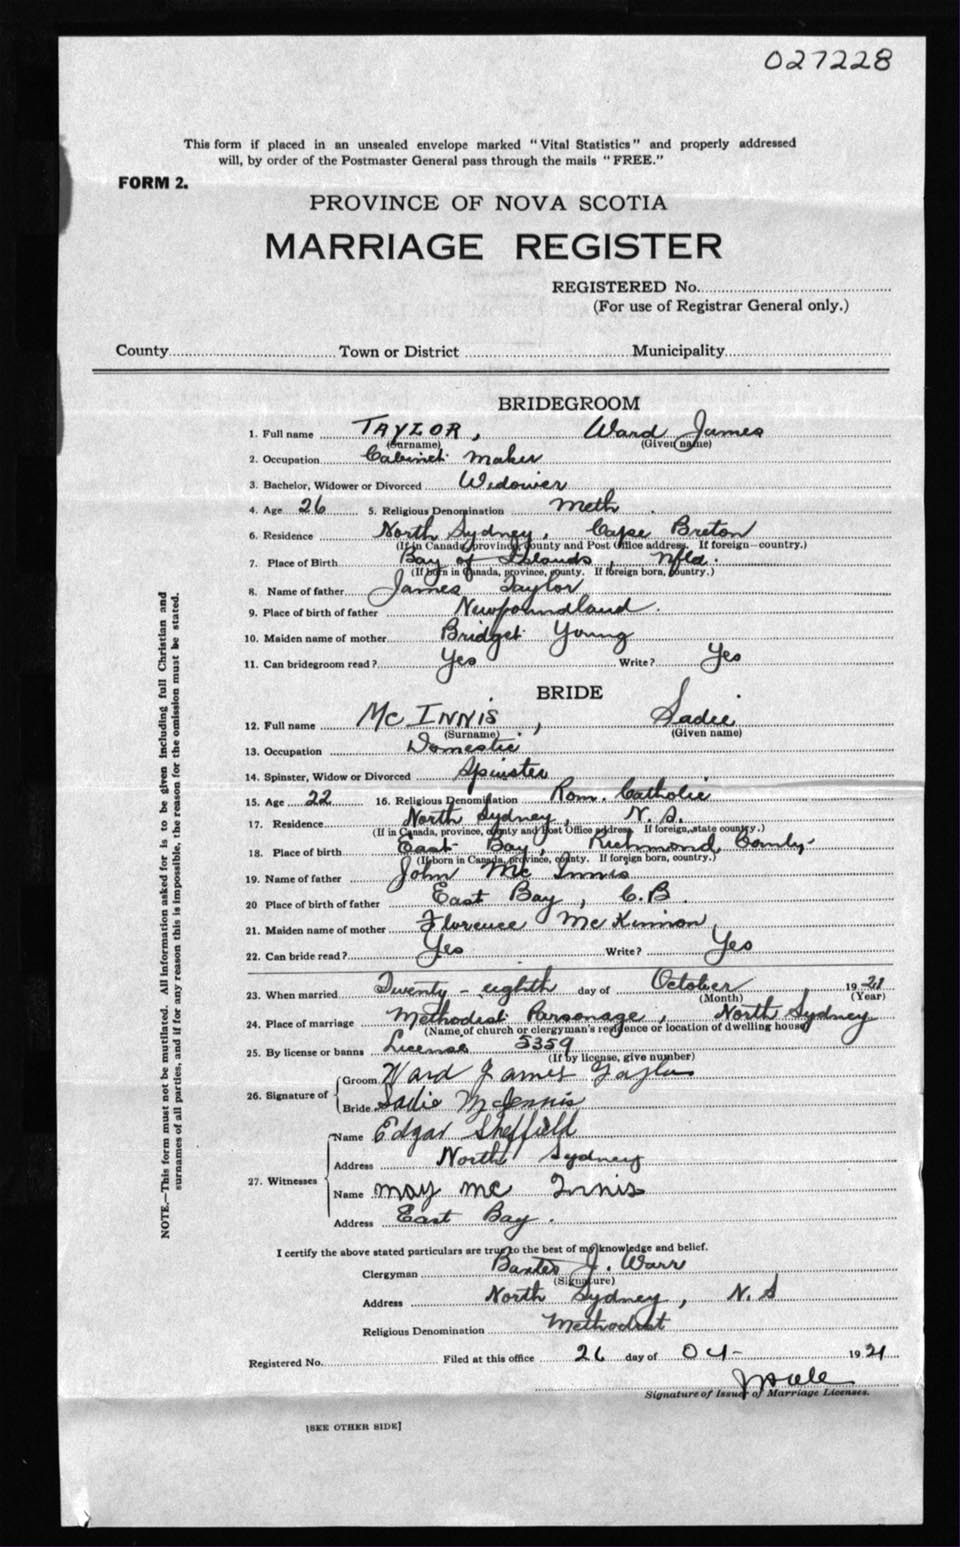 027228
This form if placed in an unsealed envelope marked "Vital Statistics" and properly addressed
will, by order of the Postmaster General pass through the mails "FREE."
FORM 2.
PROVINCE OF NOVA SCOTIA
MARRIAGE REGISTER
REGISTERED No.
(For use of Registrar General only.)
County Town or District Municipality
BRIDEGROOM
1. Full name TAYLOR, Ward James
(Surname) (Given name)
2. Occupation Cabinet maker
3. Bachelor, Widower or Divorced Widower
4. Age 26 5. Religious Denomination Meth.
6. Residence North Sydney, Cape Breton
(If in Canada, province, county and Post Office address. If foreign—country.)
7. Place of Birth Bay of Islands, Nfld.
(If born in Canada, province, county. If foreign born, country.)
8. Name of father James Taylor
9. Place of birth of father Newfoundland.
10. Maiden name of mother Bridget Young
11. Can bridegroom read? Yes Write? Yes
BRIDE
12. Full name Mc INNIS, Sadie
(Surname) (Given name)
13. Occupation Domestic
14. Spinster, Widow or Divorced Spinster
15. Age 22 16. Religious Denomination Rom. Catholic
17. Residence North Sydney, N. S.
(If in Canada, province, county and Post Office address. If foreign, state country.)
18. Place of birth East Bay, Richmond County
(If born in Canada, province, county. If foreign born, country.)
19. Name of father John Mc Innis
20 Place of birth of father East Bay, C.B.
21. Maiden name of mother Florence McKinnon
22. Can bride read? Yes Write? Yes
23. When married Twenty-eighth day of October 1921
(Month) (Year)
24. Place of marriage Methodist Parsonage, North Sydney
(Name of church or clergyman's residence or location of dwelling house)
25. By license or banns License 5359
(If by license, give number)
26. Signature of Groom Ward James Taylor
Bride Sadie McInnis
27. Witnesses Name Edgar Sheffield
Address North Sydney
Name May Mc Innis
Address East Bay.
I certify the above stated particulars are true to the best of my knowledge and belief.
Clergyman Baxter J. Warr
(Signature)
Address North Sydney, N.S
Religious Denomination Methodist
Registered No. Filed at this office 26 day of Oct- 1921
Signature of Issuer of Marriage Licenses.
[SEE OTHER SIDE]
NOTE.—This form must not be mutilated. All information asked for is to be given including full Christian and
surnames of all parties, and if for any reason this is impossible, the reason for the omission must be stated.